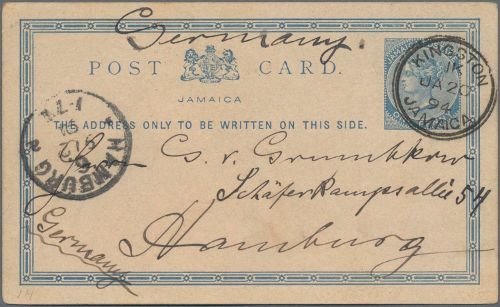 Germany.
POST CARD.
JAMAICA
THE ADDRESS ONLY TO BE WRITTEN ON THIS SIDE.
KINGSTON
JA 20
94
JAMAICA
HAMBURG
G. v. Grumbkow
Schäferkampsallée 54
Hamburg
Germany